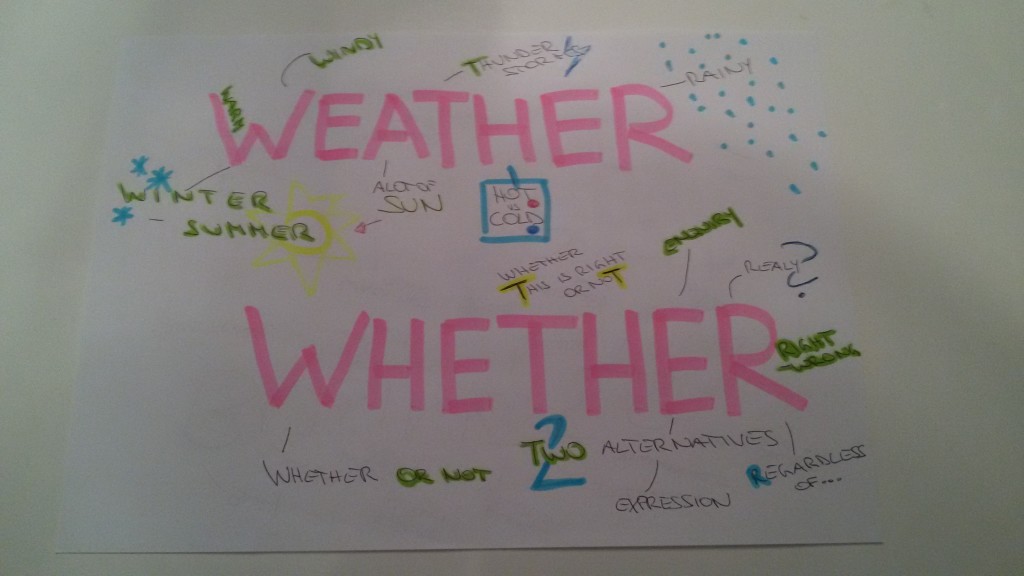 WINDY
THUNDER
STORM
RAINY
WEATHER
WINTER
SUMMER
A LOT OF
SUN
HOT
VS
COLD
WHETHER
THIS IS RIGHT
OR NOT
ENQUIRY
REALY?
WHETHER
RIGHT
WRONG
WHETHER OR NOT
2
TWO ALTERNATIVES
EXPRESSION
REGARDLESS
OF...